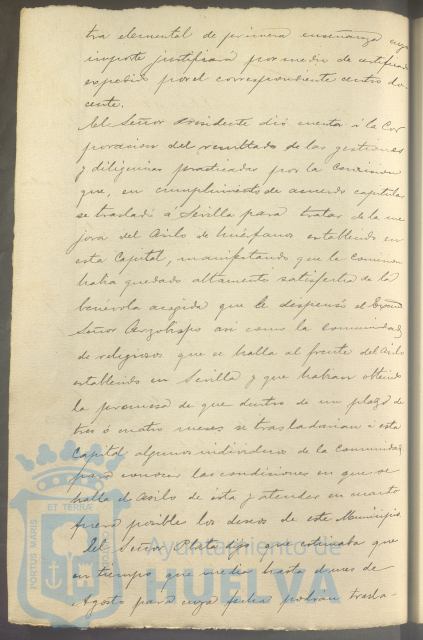 tra elemental de primera enseñanza cuyo
importe justificará por medio de certificado
expedido por el correspondiente centro do-
cente.
El Señor Presidente dió cuenta á la Cor
poracion del resultado de las gestiones
y diligencias practicadas por la Comision
que, en cumplimiento de acuerdo capitular
se trasladó á Sevilla para tratar de la me
jora del Asilo de huérfanos establecido en
esta Capital, manifestando que la Comision
habia quedado altamente satisfecha de la
benévola acogida que le dispensó el Excmo
Señor Arzobispo asi como la comunidad
de religiosos que se halla al frente del Asilo
establecido en Sevilla y que habian obtenido
la promesa de que dentro de un plazo de
tres ó cuatro meses se trasladarian á esta
Capital algunos individuos de la Comunidad
para conocer las condiciones en que se
halla el Asilo de esta y atender en cuanto
fuera posibles los deseos de este Municipio
El Señor Plata dijo que estimaba que
en tiempo que media hasta de
Agosto para cuya fecha podrian trasla-
PORTUS MARIS
ET TERRAE
Ayuntamiento de
HUELVA